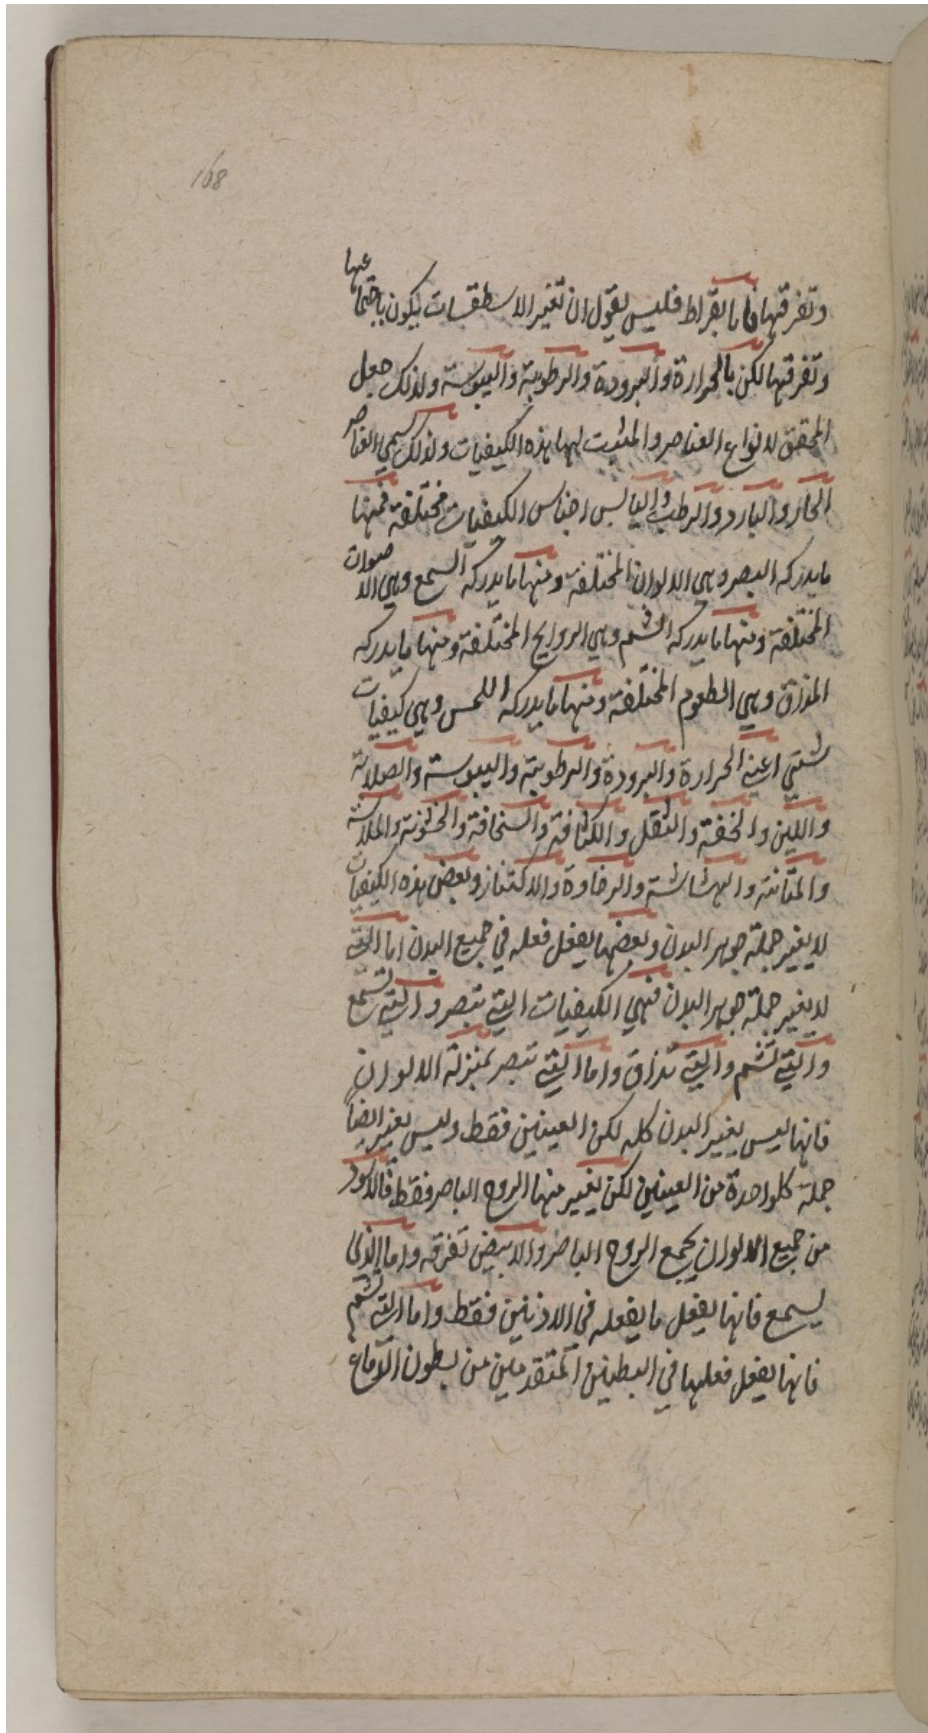 168
وتفرقتها فاما بقراط فليس يقول ان تغير الاسطقسات يكون باجتماعها
وتفرقتها لكن بالحرارة والبرودة والرطوبة واليبوسة ولذلك جعل
المحقق لانواع العناصر والمثبت لها هذه الكيفيات ولذلك سمي العناصر
الحار والبارد والرطب واليابس اجناس الكيفيات مختلفة فمنها
ما يدركه البصر وهي الالوان المختلفة ومنها ما يدركه السمع وهي الاصوات
المختلفة ومنها ما يدركه الشم وهي الروايح المختلفة ومنها ما يدركه
المذاق وهي الطعوم المختلفة ومنها ما يدركه اللمس وهي كيفيات
شتي اعني الحرارة والبرودة والرطوبة واليبوسة والصلابة
واللين والخفة والثقل والكثافة والسخافة والخشونة والملاسة
والمتانة والهشاشة والرخاوة والاكتناز وبعض هذه الكيفيات
لا يغير جملة جوهر البدن وبعضها يفعل فعله في جميع البدن اما التي
لا يغير جملة جوهر البدن فهي الكيفيات التي تبصر والتي تسمع
والتي تشم والتي تذاق واما التي تبصر بمنزلة الالوان
فانها ليس يغير البدن كله لكن العينين فقط وليس يغير ايضا
جملة كلواحدة من العينين لكن يغير منها الروح الباصر فقط فالاسود
من جميع الالوان يجمع الروح الباصر والابيض تفرقه واما الذي
يسمع فانها يفعل ما يفعله في الاذنين فقط واما التي تشم
فانها يفعل فعلها في البطنين المتقدمين من بطون الدماغ